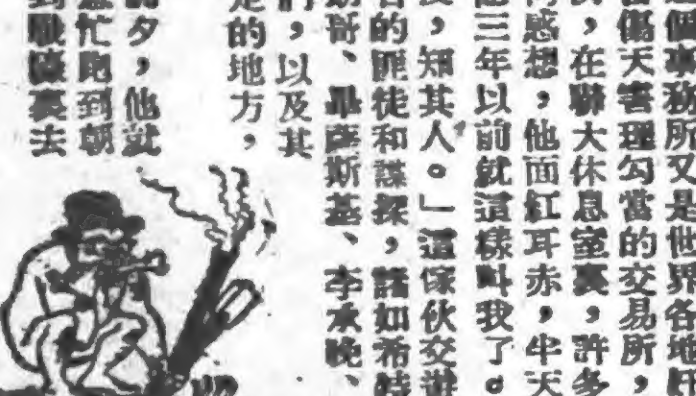 個事務所又是世界各地奸
傷天害理勾當的交易所,
,在聯大休息室裏,許多
感想,他面紅耳赤,半天
三年以前就這樣叫我了。
,知其人。」這傢伙交遊
的匪徒和諜探,諸如希特
哥、畢薩斯基、李承晚、
,以及其
的地方,
夕,他就
忙跑到朝
到戰壕裏去